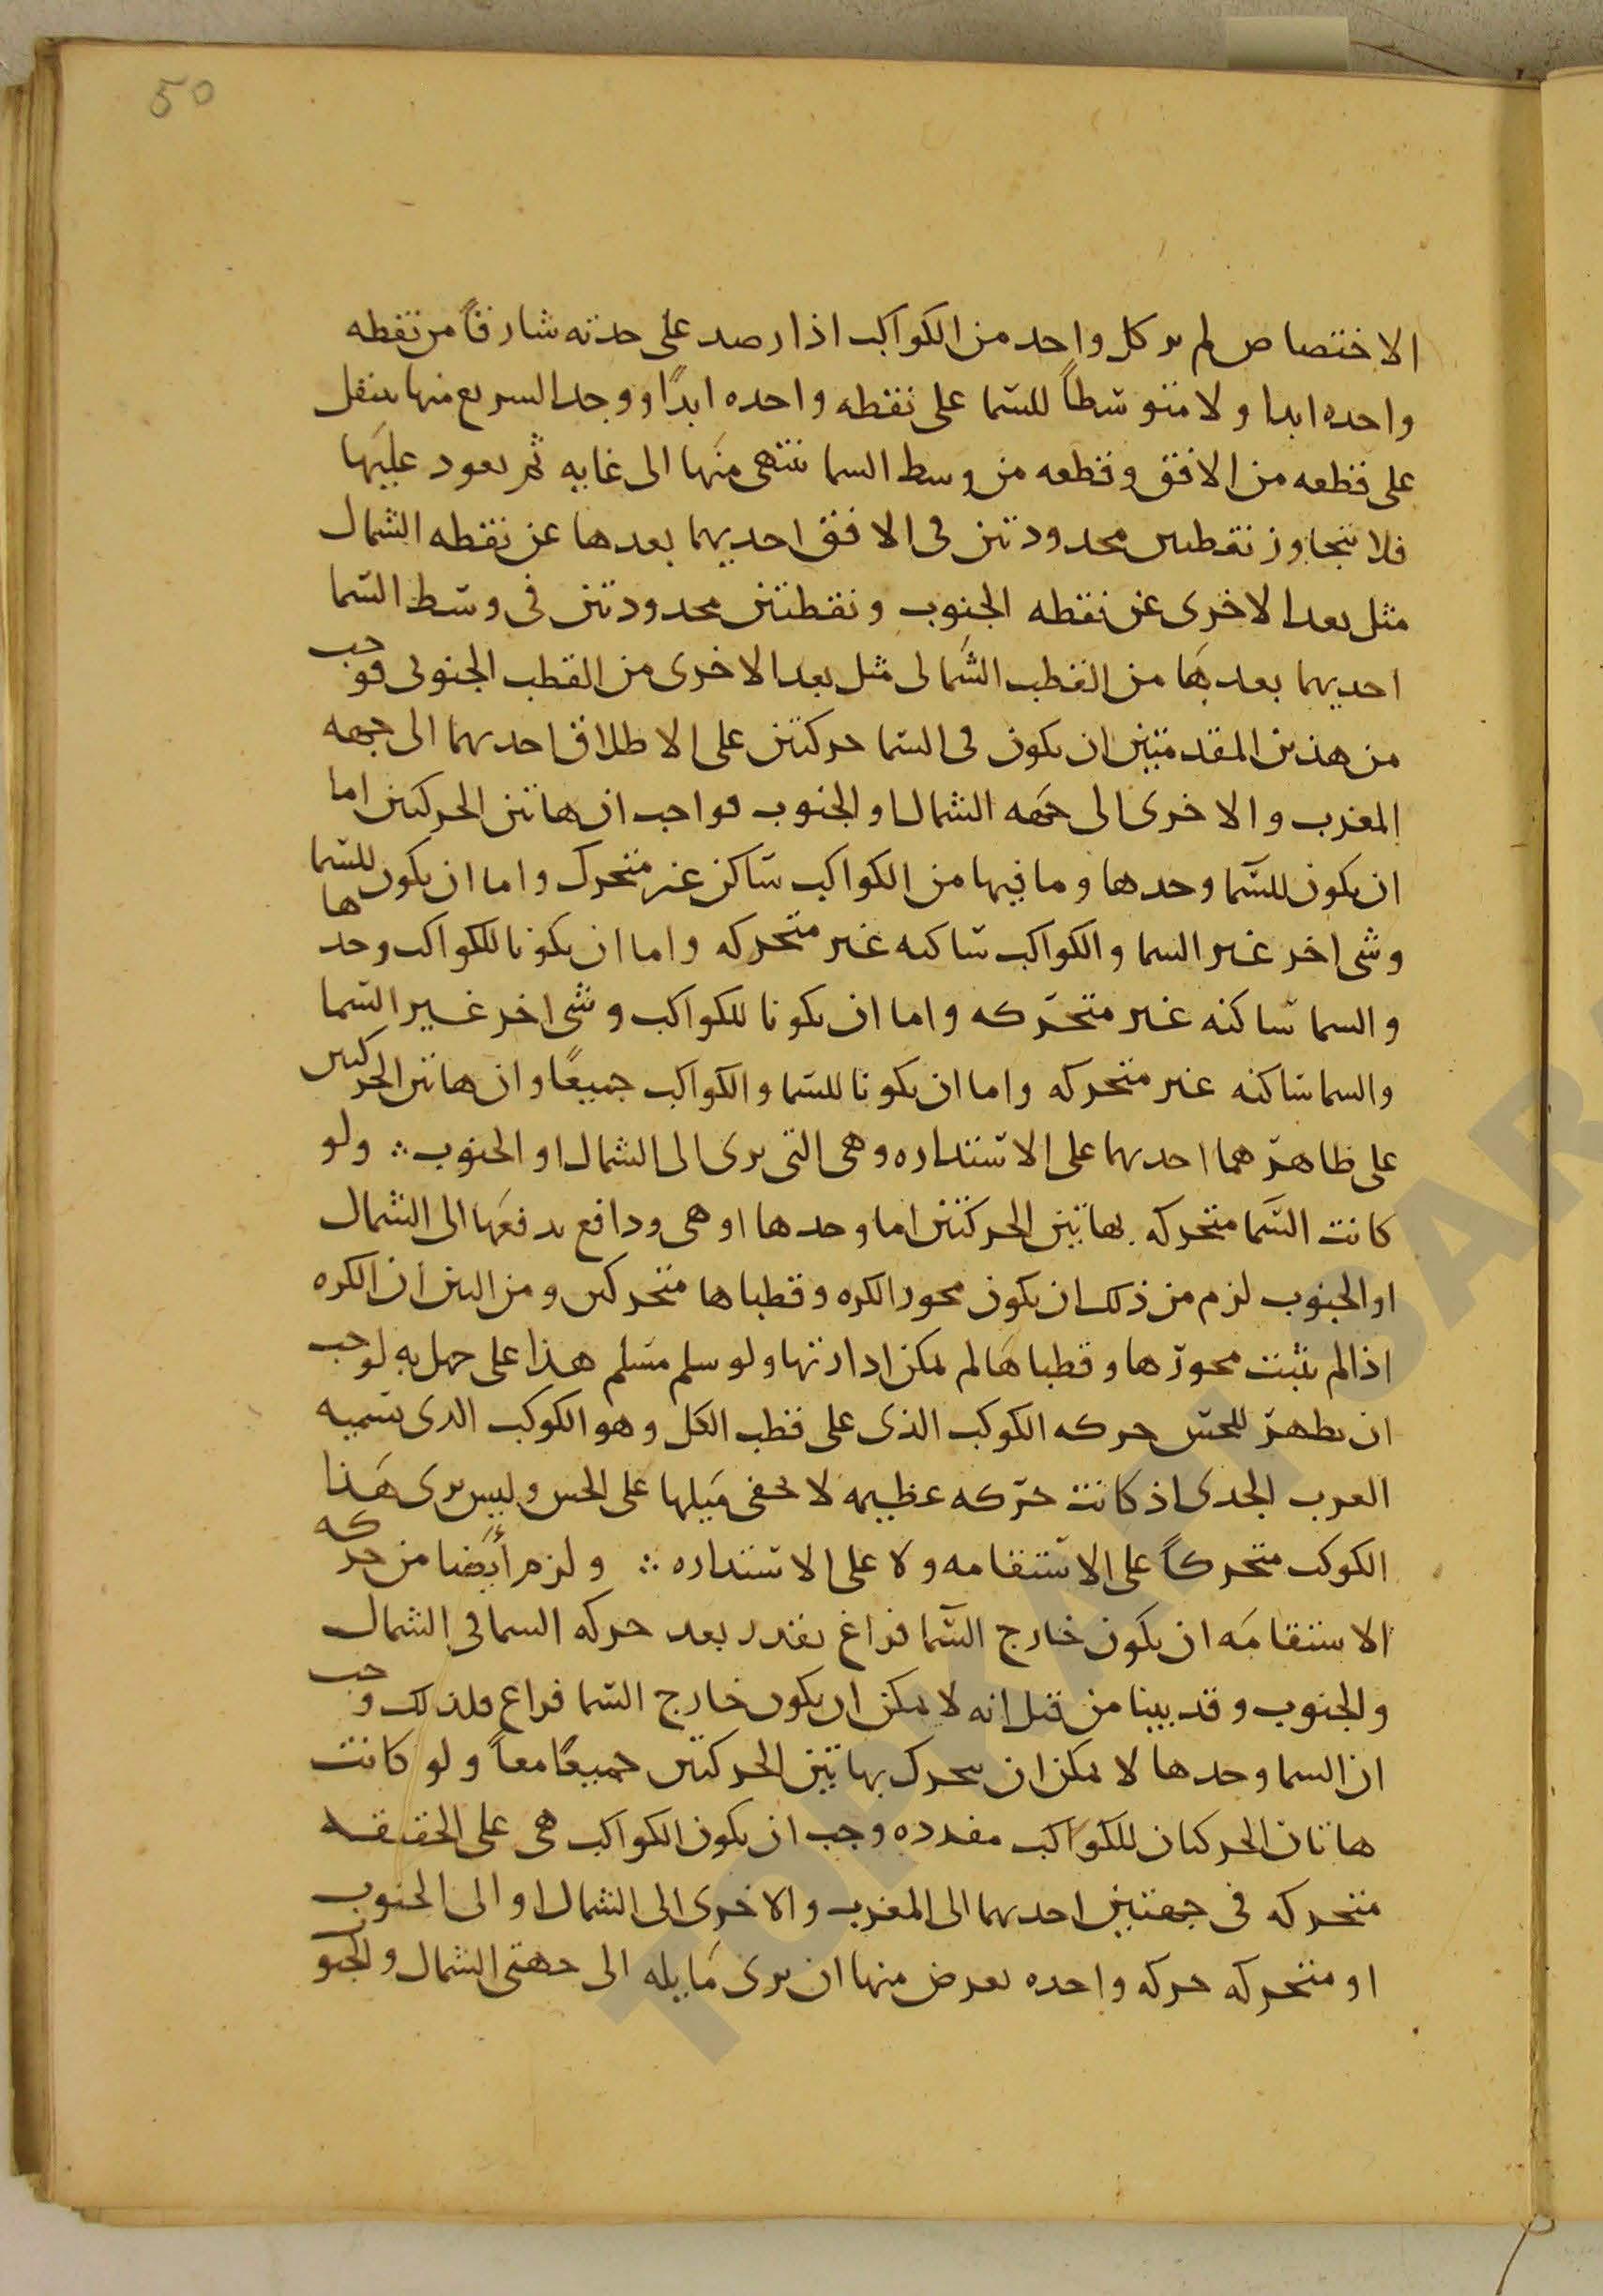 50
الاختصاص لم ير كل واحد من الكواكب اذا رصد على حدته شارقاً من نقطه
واحده ابدا ولا متوسطاً للسما على نقطه واحده ابدًا ووجد السريع منها ينتقل
على قطعه من الافق وقطعه من وسط السما ينتهى منها الى غايه ثم يعود عليها
فلا يتجاوز نقطتين محدودتين فى الافق احديهما بعدها عن نقطه الشمال
مثل بعد الاخرى عن نقطه الجنوب ونقطتين محدودتين فى وسط السما
احديهما بعدها من القطب الشمالى مثل بعد الاخرى من القطب الجنوبى فوجب
من هذين المقدمتين ان يكون فى السما حركتين على الاطلاق احديهما الى جهه
المغرب والاخرى الى جهه الشمال او الجنوب فواجب ان هاتين الحركتين اما
ان يكون للسما وحدها وما فيها من الكواكب ساكن غير متحرك واما ان يكون للسما
وشى اخر غير السما والكواكب ساكنه غير متحركه واما ان يكونا للكواكب وحدها
والسما ساكنه غير متحركه واما ان يكونا للكواكب وشى اخر غير السما
والسما ساكنه غير متحركه واما ان يكونا للسما والكواكب جميعًا وان هاتين الحركتين
على ظاهرهما احديهما على الاستداره وهى التى يرى الى الشمال او الجنوب ∴ ولو
كانت السما متحركه بهاتين الحركتين اما وحدها او هى ودافع يدفعها الى الشمال
او الجنوب لزم من ذلك ان يكون محور الكره وقطباها متحركين ومن البين ان الكره
اذا لم يثبت محورها وقطباها لم يمكن ادارتها ولو سلم مسلم هذا على جهل به لوجب
ان يظهر للحس حركه الكوكب الذى على قطب الكل وهو الكوكب الذى تسميه
العرب الجدى اذ كانت حركه عظيمه لا يخفى ميلها على الحس وليس يرى هذا
الكوكب متحركاً على الاستقامه ولا على الاستداره ∴ ولزم أيضا من حركه
الاستقامه ان يكون خارج السما فراغ بقدر بعد حركه السما فى الشمال
والجنوب وقد بينا من قبل انه لا يمكن ان يكون خارج السما فراغ فلذلك وجب
ان السما وحدها لا يمكن ان يتحرك بهاتين الحركتين جميعًا معاً ولو كانت
هاتان الحركتان للكواكب مفرده وجب ان يكون الكواكب هى على الحقيقه
متحركه فى جهتين احديهما الى المغرب والاخرى الى الشمال او الى الجنوب
او متحركه حركه واحده يعرض منها ان يرى مايله الى جهتى الشمال والجنوب